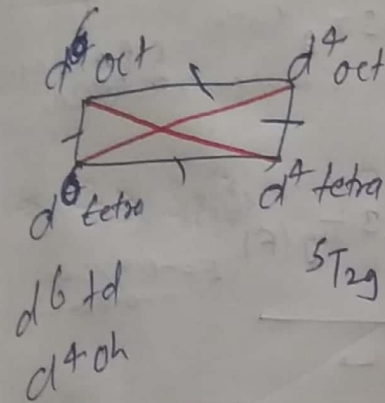 d⁶ oct
d⁴ oct
d⁶ tetra
d⁴ tetra
⁵T₂g
d⁶ td
d⁴ oh